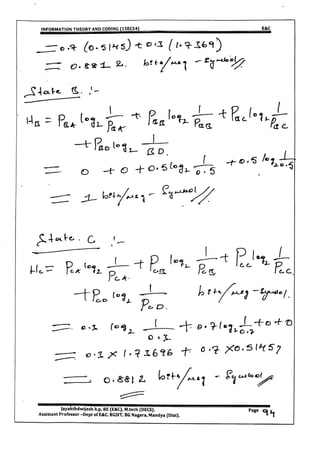 INFORMATION THEORY AND CODING (15EC54) E&C
= 0.7 (0.5145) + 0.3 (1.7369)
= 0.8812. bits/msg - Symbol//
State B. :-
HB = PBA log2 1/PBA + PBB log2 1/PBB + PBC log2 1/PBC
+ PBD log2 1/BD.
= 0 + 0 + 0.5 log2 1/0.5 + 0.5 log2 1/0.5
= 1 bits/msg - Symbol//
State. C :-
HC = PCA log2 1/PCA + PCB log2 1/PCB + PCC log2 1/PCC
+ PCD log2 1/PCD. bits/msg - Symbol.
= 0.3 log2 1/0.3 + 0.7 log2 1/0.7 + 0 + 0
= 0.3 X 1.73696 + 0.7 X 0.51457
= 0.8812 bits/msg - Symbol//
Jayaththdwijesh h.p, BE (E&C), M.tech (DECS). Page 94
Assistant Professor -Dept of E&C, BGSIT, BG Nagara, Mandya (Dist).